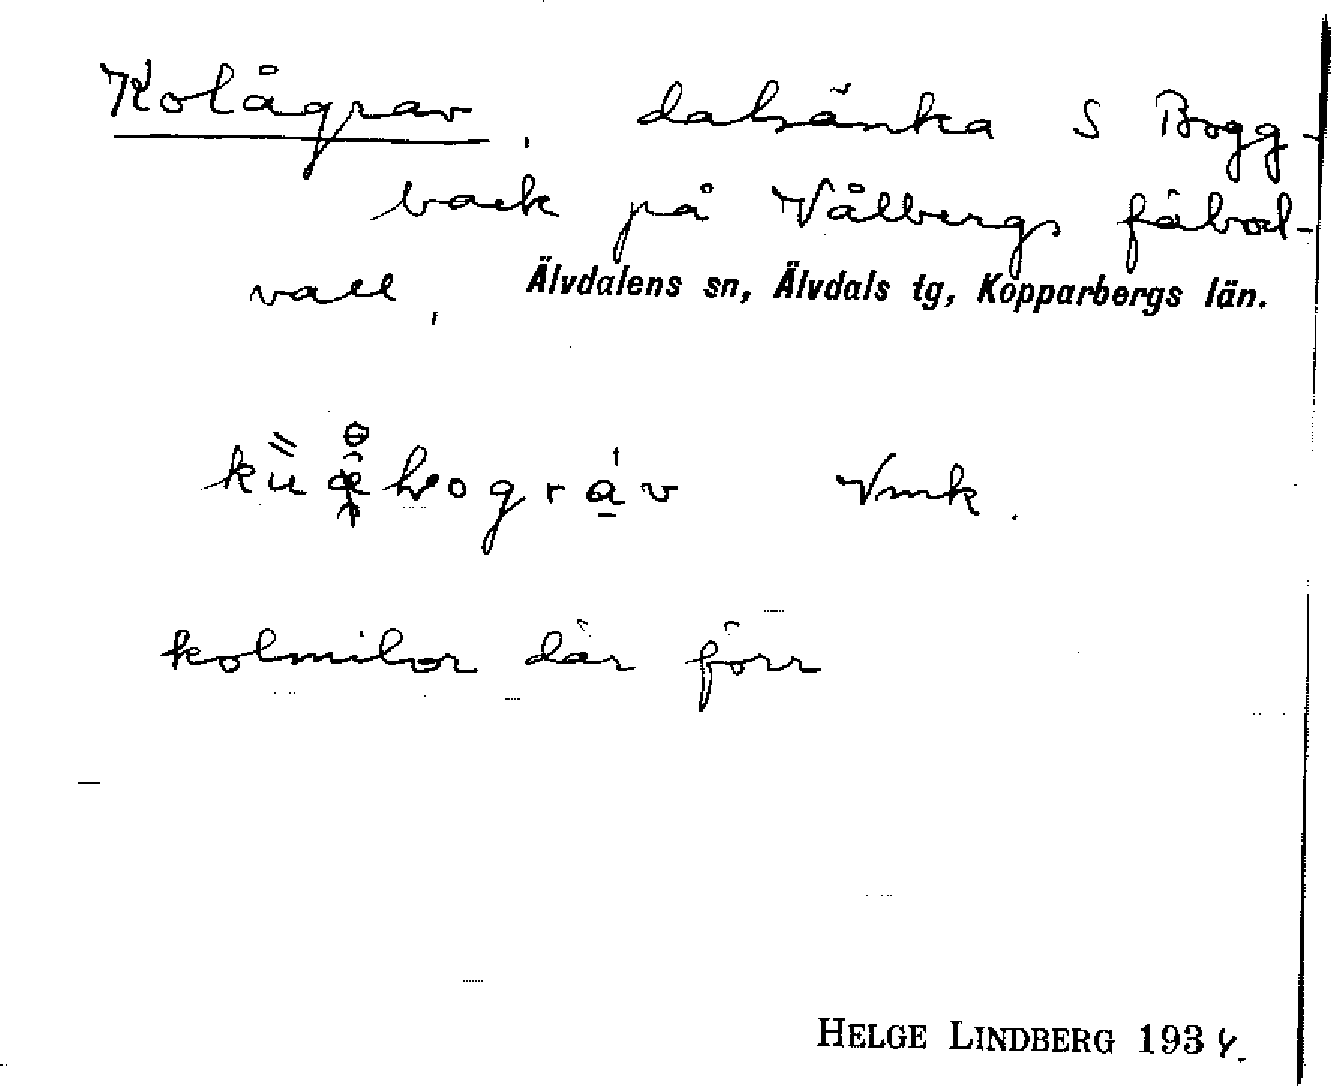 Kolågrav, dalsänka S Bogg-
back på Vålbergs fäbod-
vall, Älvdalens sn, Älvdals tg, Kopparbergs län.
Vmk.
kolmilor där förr
HELGE LINDBERG 1934.